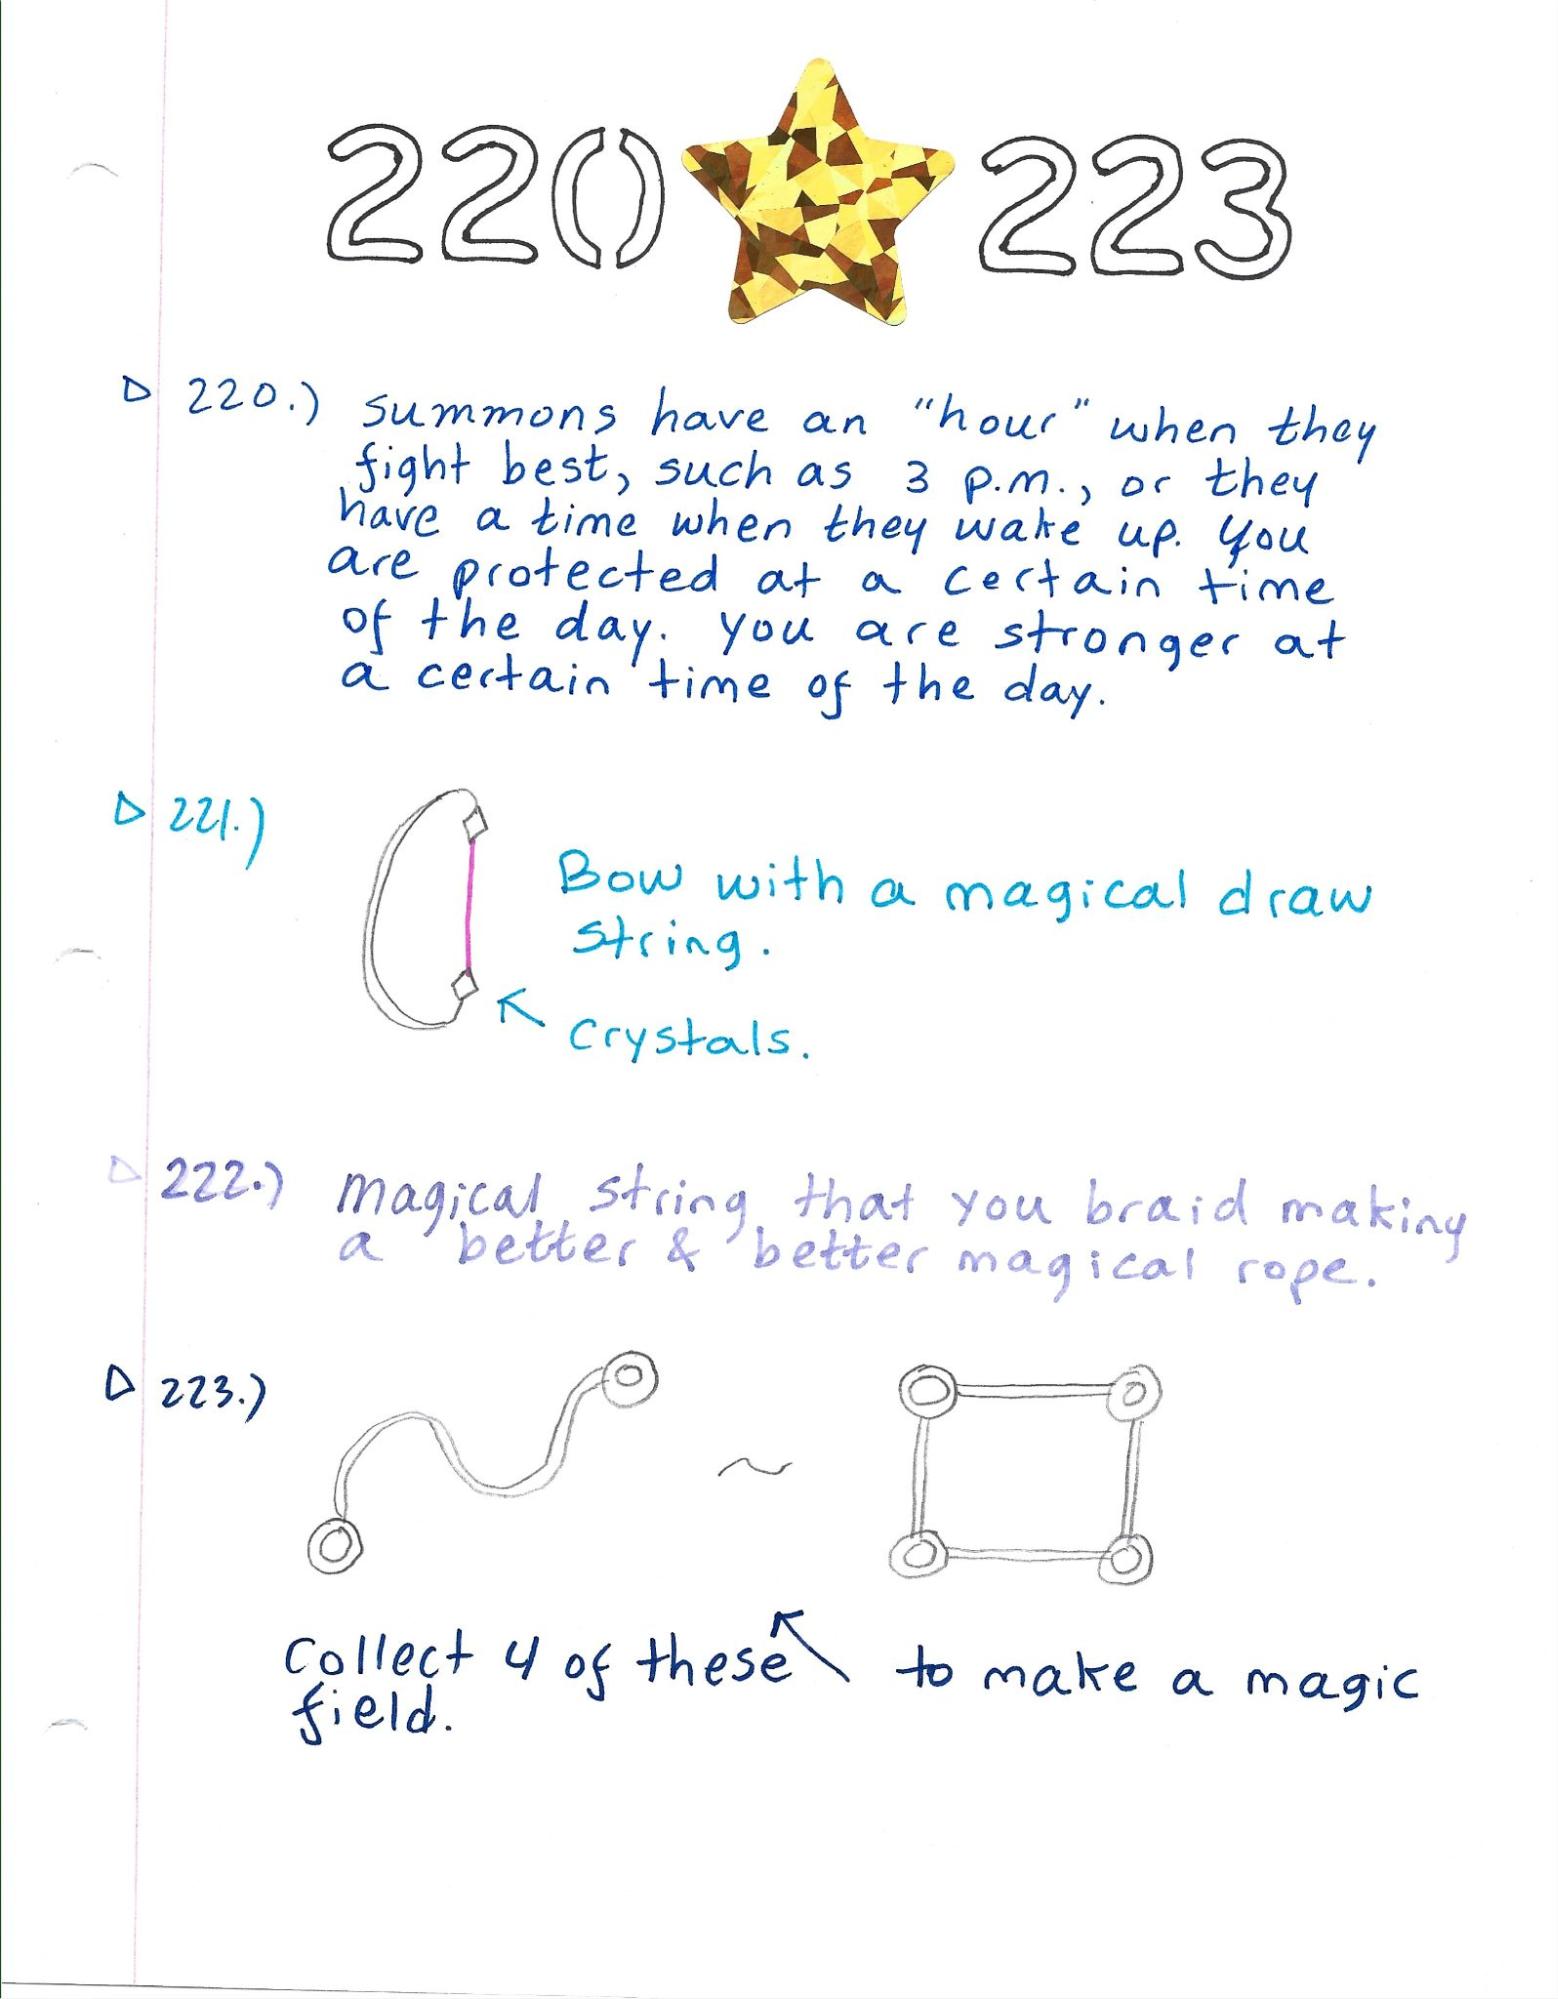 220 223
220.) Summons have an "hour" when they
fight best, such as 3 p.m., or they
have a time when they wake up. You
are protected at a certain time
of the day. You are stronger at
a certain time of the day.
221.)
Bow with a magical draw
string.
Crystals.
222.) Magical string that you braid making
a better & better magical rope.
223.)
~
Collect 4 of these to make a magic
field.